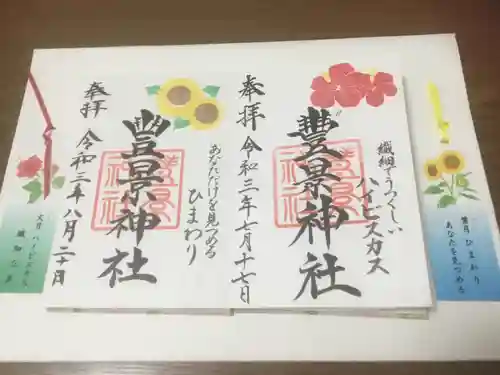 奉拝
豊景神社
繊細でうつくしい
ハイビスカス
令和三年七月十七日
奉拝
豊景神社
あなただけを見つめる
ひまわり
令和三年八月二十日
ハイビスカス
ひまわり
あなたを見つめる